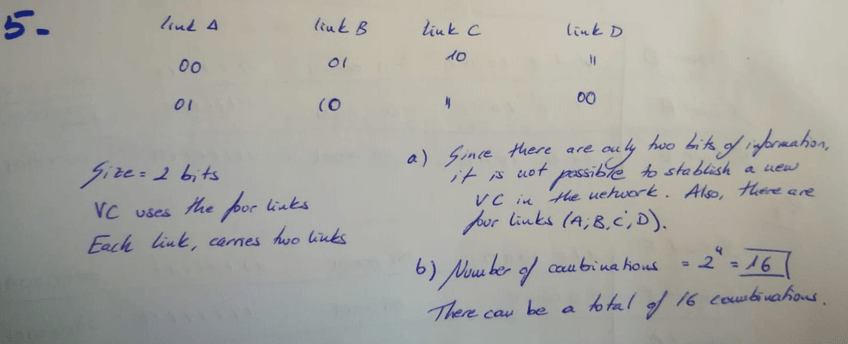 5-
link A link B link C link D
00 01 10 11
01 10 11 00
Size = 2 bits
VC uses the four links
Each link, carries two links
a) Since there are only two bits of information,
it is not possible to stablish a new
VC in the network. Also, there are
four links (A, B, C, D).
b) Number of combinations = 2⁴ = 16
There can be a total of 16 combinations.